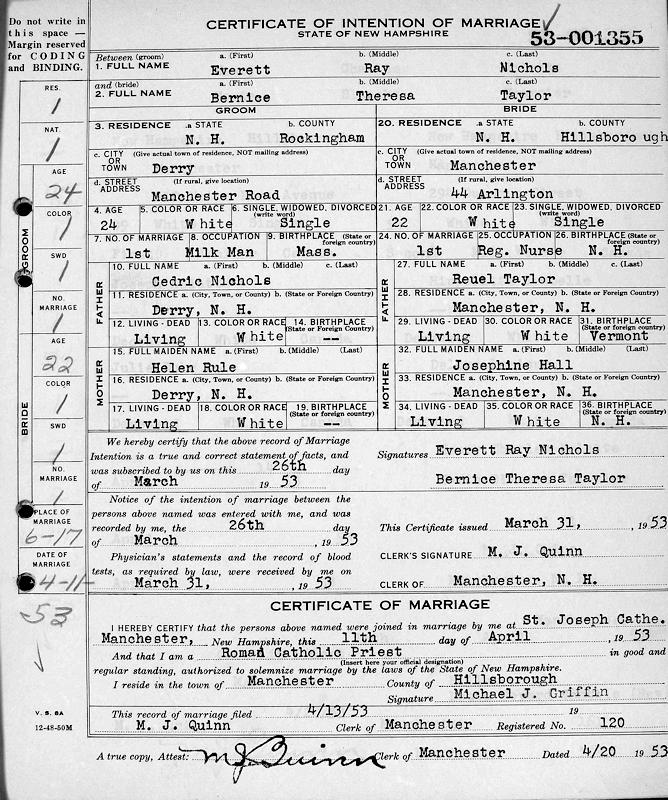 Do not write in
this space —
Margin reserved
for CODING
and BINDING.
RES.
1
NAT.
1
AGE
24
COLOR
1
SWD
1
NO.
MARRIAGE
1
AGE
22
COLOR
1
SWD
1
NO.
MARRIAGE
1
PLACE OF
MARRIAGE
6-17
DATE OF
MARRIAGE
4-11-
53
GROOM
BRIDE
V. S. 8A
12-48-50M
CERTIFICATE OF INTENTION OF MARRIAGE
STATE OF NEW HAMPSHIRE
53-001355
Between (groom) a. (First) b. (Middle) c. (Last)
1. FULL NAME Everett Ray Nichols
and (bride) a. (First) b. (Middle) c. (Last)
2. FULL NAME Bernice Theresa Taylor
GROOM BRIDE
3. RESIDENCE a. STATE b. COUNTY 20. RESIDENCE a. STATE b. COUNTY
N. H. Rockingham N. H. Hillsboro ugh
c. CITY OR TOWN (Give actual town of residence, NOT mailing address) Derry c. CITY OR TOWN (Give actual town of residence, NOT mailing address) Manchester
d. STREET ADDRESS (If rural, give location) Manchester Road d. STREET ADDRESS (If rural, give location) 44 Arlington
4. AGE 5. COLOR OR RACE 6. SINGLE, WIDOWED, DIVORCED (write word) 21. AGE 22. COLOR OR RACE 23. SINGLE, WIDOWED, DIVORCED (write word)
24 W hite Single 22 W hite Single
7. NO. OF MARRIAGE 8. OCCUPATION 9. BIRTHPLACE (State or foreign country) 24. NO. OF MARRIAGE 25. OCCUPATION 26. BIRTHPLACE (State or foreign country)
1st Milk Man Mass. 1st Reg. Nurse N. H.
FATHER
10. FULL NAME a. (First) b. (Middle) c. (Last) 27. FULL NAME a. (First) b. (Middle) c. (Last)
Cedric Nichols Reuel Taylor
11. RESIDENCE a. (City, Town, or County) b. (State or Foreign Country) 28. RESIDENCE a. (City, Town, or County) b. (State or Foreign Country)
Derry, N. H. Manchester, N. H.
12. LIVING - DEAD 13. COLOR OR RACE 14. BIRTHPLACE (State or foreign country) 29. LIVING - DEAD 30. COLOR OR RACE 31. BIRTHPLACE (State or foreign country)
Living W hite -- Living W hite Vermont
FATHER
MOTHER
15. FULL MAIDEN NAME a. (First) b. (Middle) c. (Last) 32. FULL MAIDEN NAME a. (First) b. (Middle) c. (Last)
Helen Rule Josephine Hall
16. RESIDENCE a. (City, Town, or County) b. (State or Foreign Country) 33. RESIDENCE a. (City, Town, or County) b. (State or Foreign Country)
Derry, N. H. Manchester, N. H.
17. LIVING - DEAD 18. COLOR OR RACE 19. BIRTHPLACE (State or foreign country) 34. LIVING - DEAD 35. COLOR OR RACE 36. BIRTHPLACE (State or foreign country)
Living W hite -- Living W hite N. H.
MOTHER
We hereby certify that the above record of Marriage
Intention is a true and correct statement of facts, and
was subscribed to by us on this 26th day
of March 19 53
Signatures Everett Ray Nichols
Bernice Theresa Taylor
Notice of the intention of marriage between the
persons above named was entered with me, and was
recorded by me, the 26th day
of March , 19 53
Physician's statements and the record of blood
tests, as required by law, were received by me on
March 31, , 19 53
This Certificate issued March 31, , 19 53
CLERK'S SIGNATURE M. J. Quinn
CLERK OF Manchester, N. H.
CERTIFICATE OF MARRIAGE
I HEREBY CERTIFY that the persons above named were joined in marriage by me at St. Joseph Cathe.
Manchester, New Hampshire, this 11th day of April , 19 53
And that I am a Roman Catholic Priest in good and
(Insert here your official designation)
regular standing, authorized to solemnize marriage by the laws of the State of New Hampshire.
I reside in the town of Manchester County of Hillsborough
Signature Michael J. Griffin
This record of marriage filed 4/13/53 19
M. J. Quinn Clerk of Manchester Registered No. 120
A true copy, Attest: M J Quinn Clerk of Manchester Dated 4/20 19 53